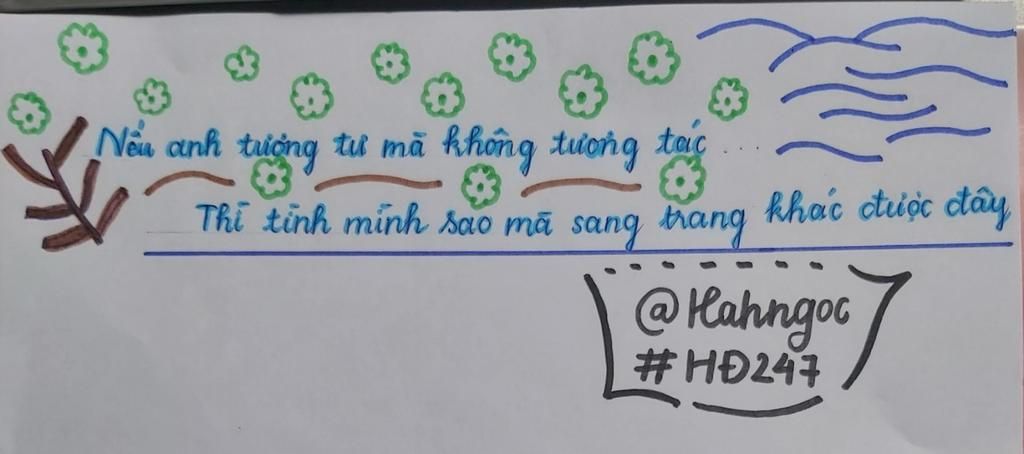 Nếu anh tương tư mà không tương tác ...
Thì tình mình sao mà sang trang khác được đây
@Hahngoc
#HĐ247